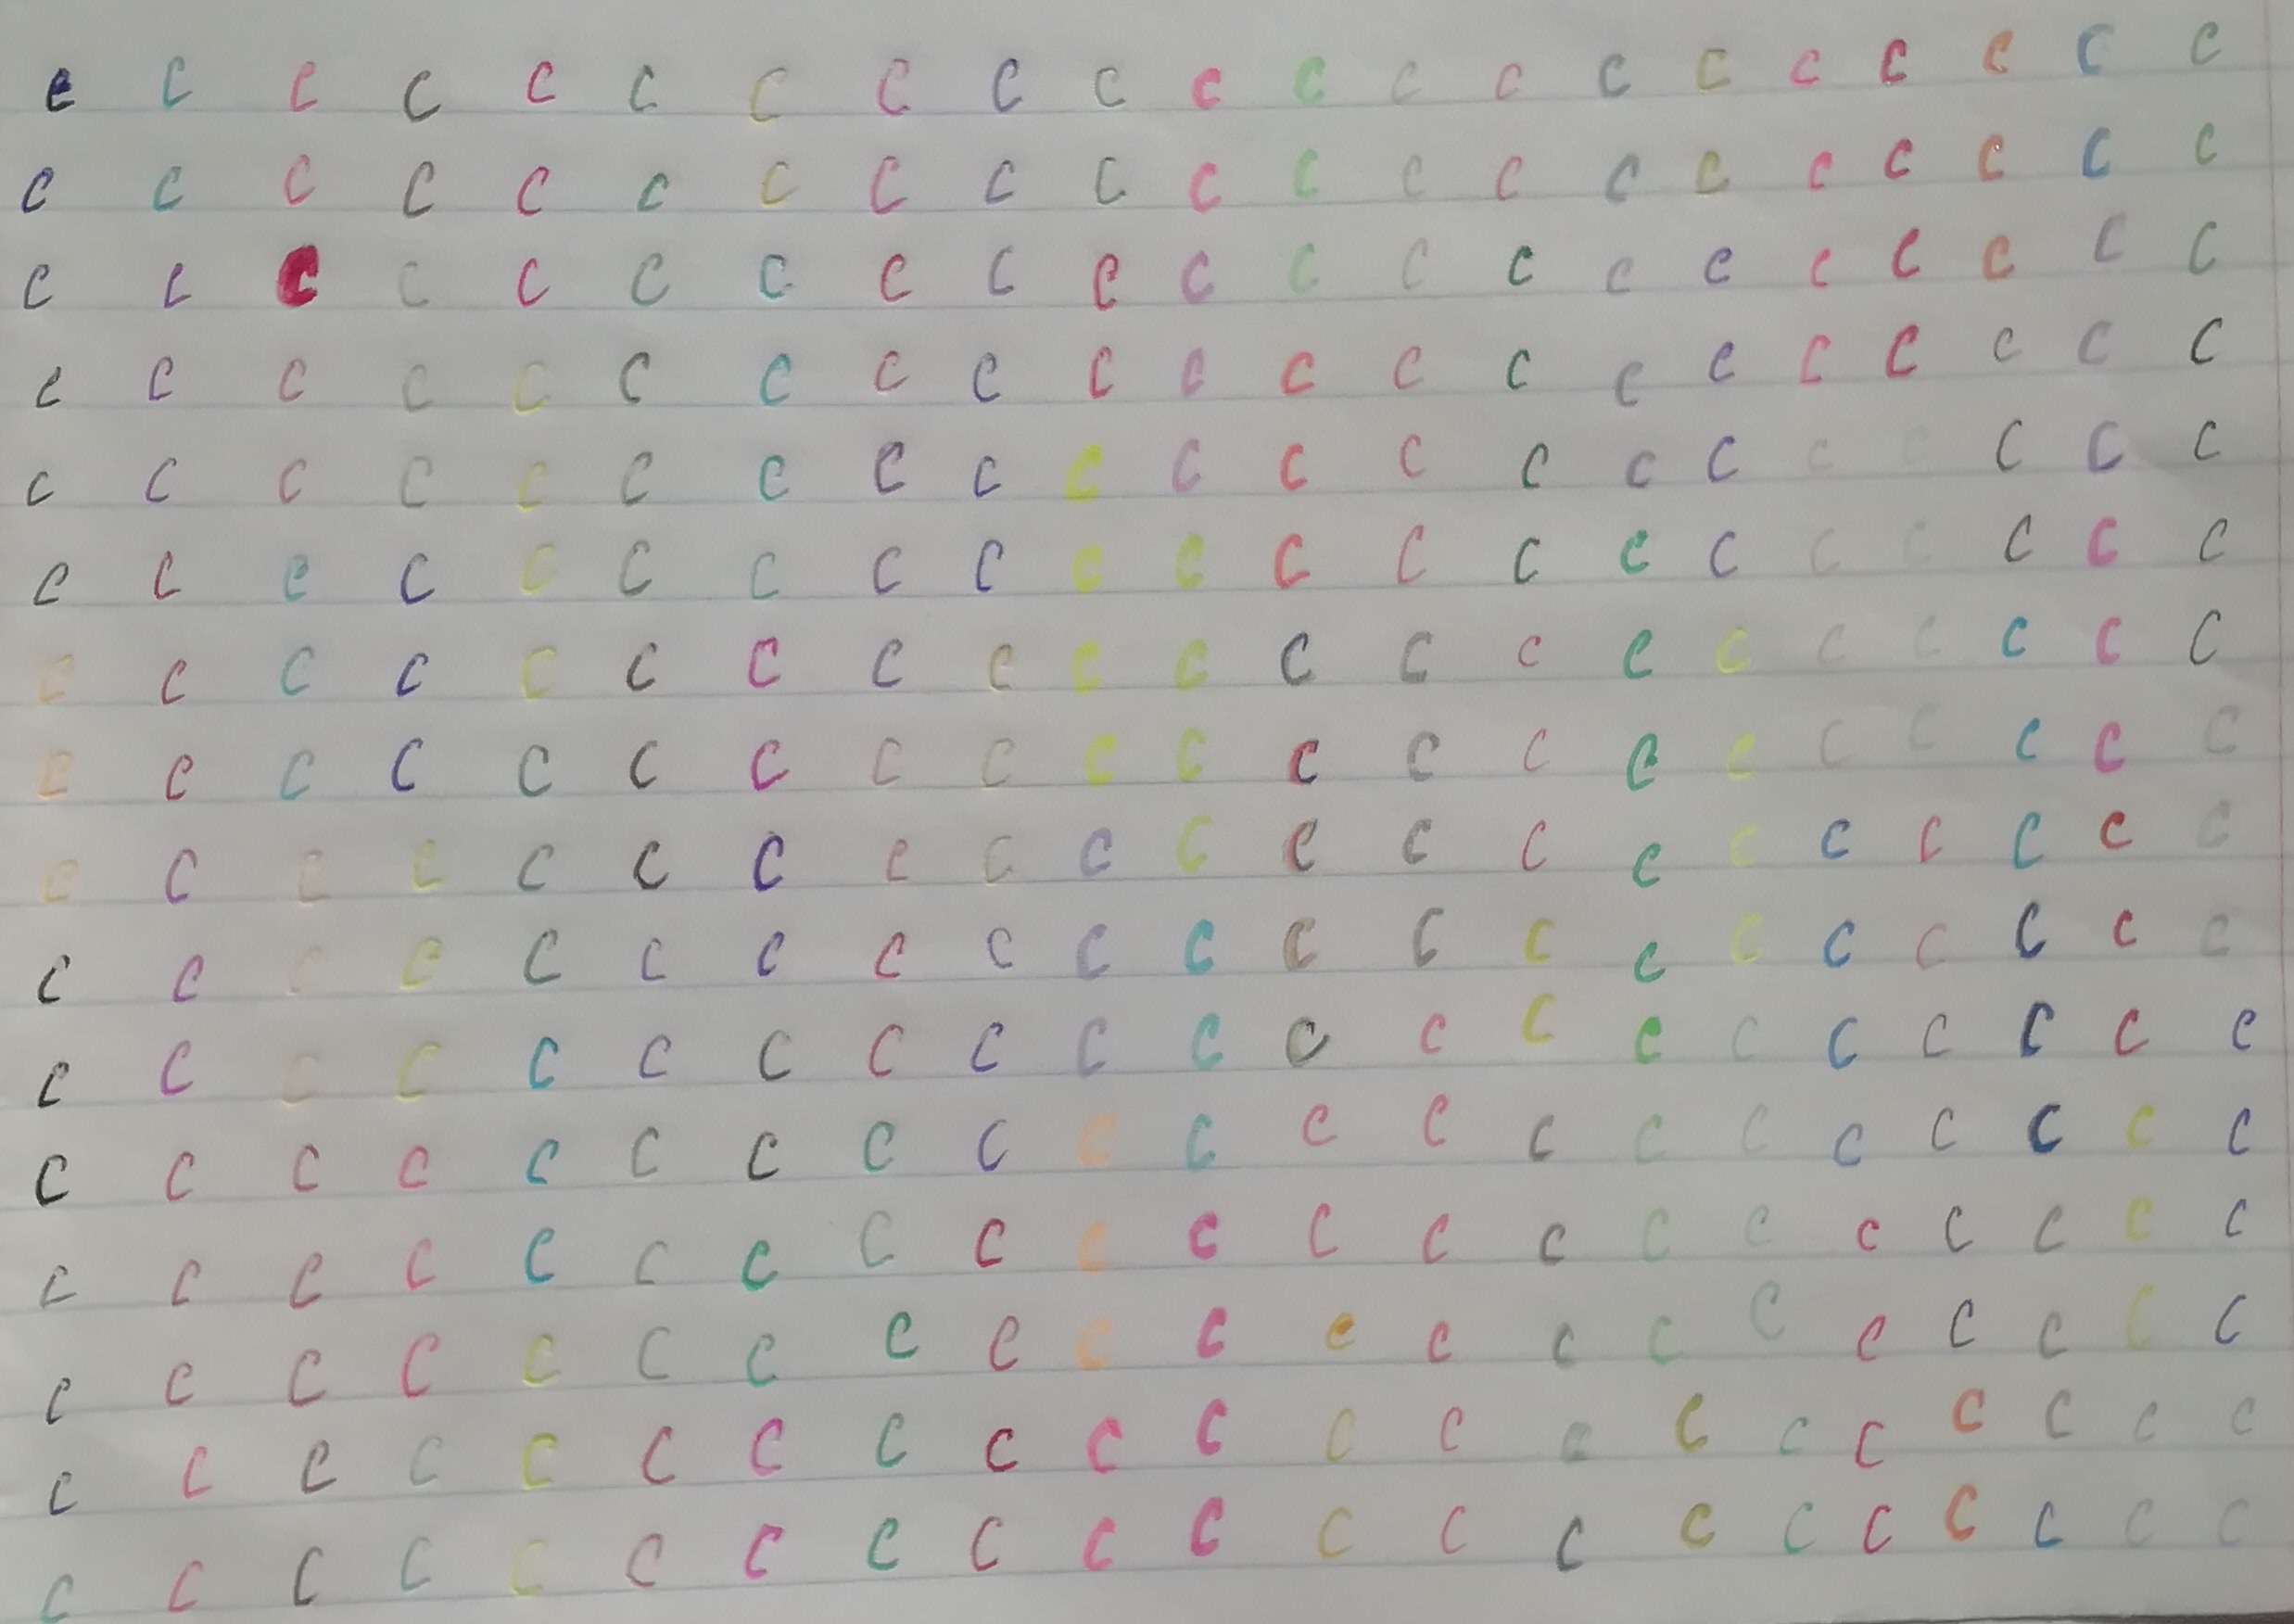 e c c c c c c c c c c c c c c c c c c c c
c c c c c c c c c c c c c c c c c c c c c
c c c c c c c c c e c c c c c e c c c c c
c c c c c c c c c c c c c c c c c c c c c
c c c c c c c c c c c c c c c c c c c c c
c c e c c c c c c c c c c c c c c c c c c
c c c c c c c c c c c c c c c c c c c c c
c c c c c c c c c c c c c c c c c c c c c
c c c c c c c c c c c c c c c c c c c c c
c c c c c c c c c c c c c c c c c c c c c
c c c c c c c c c c c c c c c c c c c c c
c c c c c c c c c c c c c c c c c c c c c
c c c c c c c c c c c c c c c c c c c c c
c c c c c c c c c c c e c c c c c c c c c
c c c c c c c c c c c c c c c c c c c c c
c c c c c c c c c c c c c c c c c c c c c